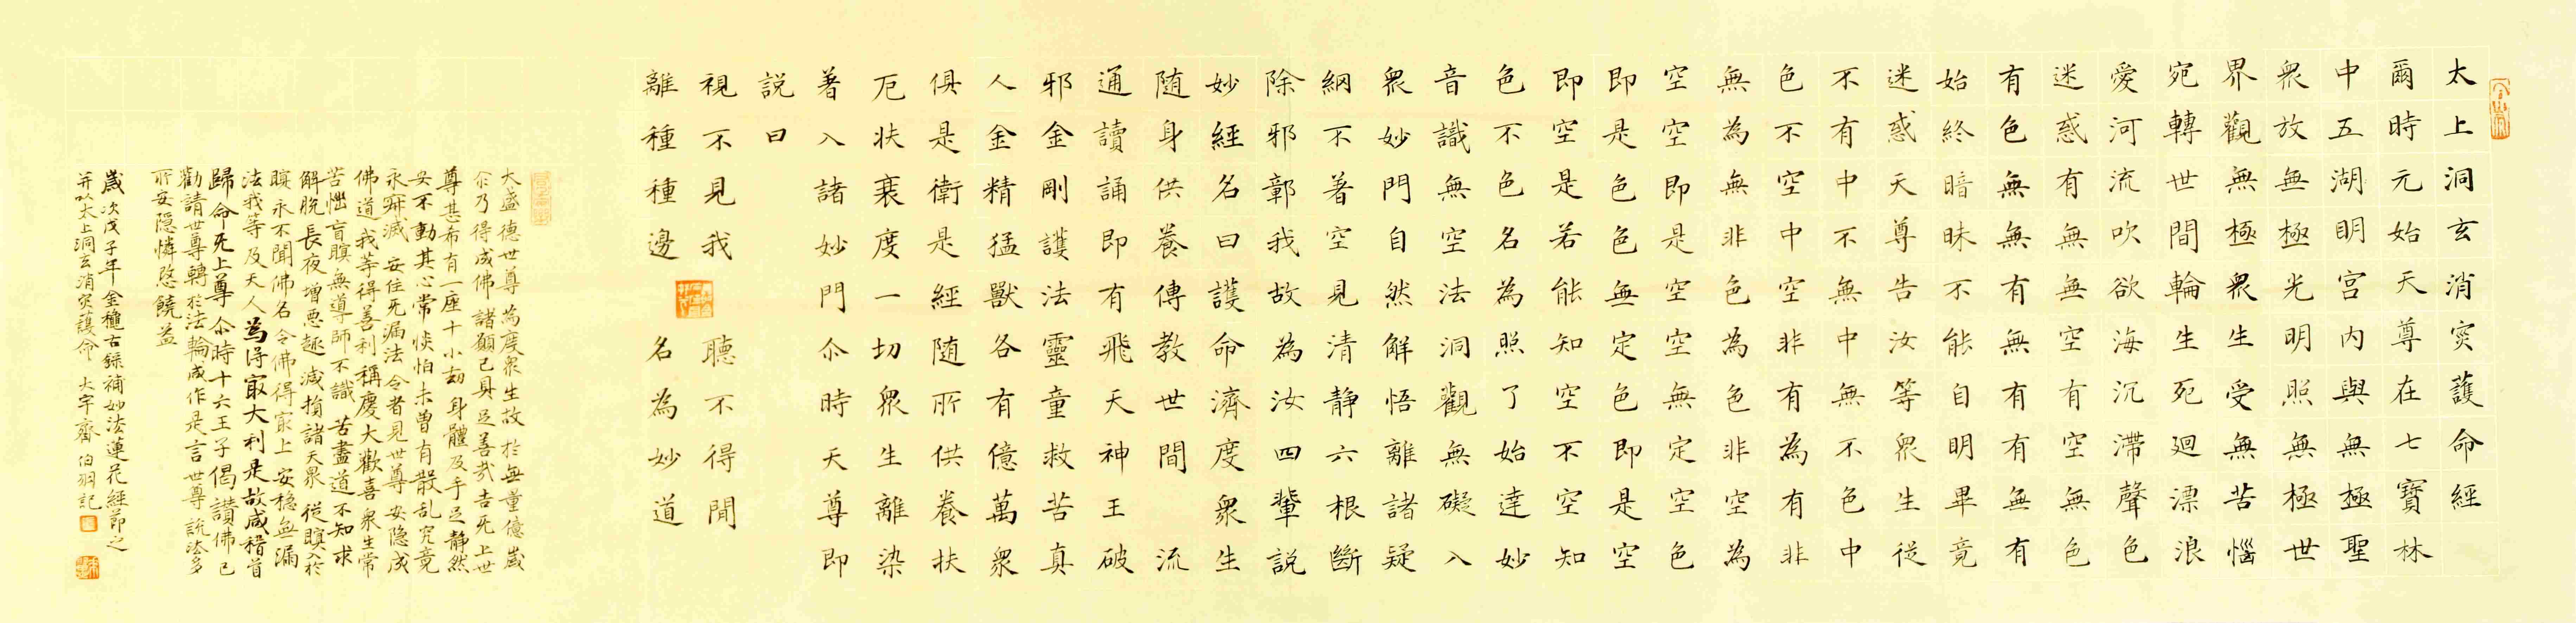 太上洞玄消灾護命經
爾時元始天尊在七寶林
中五湖明宮内與無極聖
衆放無極光明照無極世
界觀無極衆生受無苦惱
宛轉世間輪生死廻漂浪
愛河流吹欲海沉滯聲色
迷惑有無無空有空無色
有色無無有無有有無有
始終暗昧不能自明畢竟
迷惑天尊告汝等衆生從
不有中不無中無不色中
色不空中空非有為有非
無為無非色為色非空為
空空即是空空無定空色
即是色色無定色即是空
即空是若能知空不空知
色不色名為照了始達妙
音識無空法洞觀無礙入
衆妙門自然解悟離諸疑
網不著空見清静六根斷
除邪鄣我故為汝四輩説
妙經名曰護命濟度衆生
隨身供養傳教世間流
通讀誦即有飛天神王破
邪金剛護法靈童救苦真
人金精猛獸各有億萬衆
俱是衛是經随所供養扶
厄扶衰度一切衆生離染
著入諸妙門尒時天尊即
説曰
視不見我聽不得聞
離種種邊名為妙道
大盛德世尊為度衆生故於無量億歲
尒乃得成佛諸願已具足善哉吉无上世
尊甚希有一座十小劫身體及手足静然
安不動其心常恢怕未曾有散乱究竟
永寂滅安住无漏法今者見世尊安隐成
佛道我等得善利稱慶大歡喜衆生常
苦惱盲瞑無導師不識苦盡道不知求
解脱長夜增悪趣減損諸天衆從瞑入於
瞑永不聞佛名今佛得㝡上安穏無漏
法我等及天人為得㝡大利是故咸稽首
歸命无上尊尒時十六王子偈讚佛已
勸請世尊轉於法輪咸作是言世尊説法多
所安隐憐愍饒益
歲次戊子年金穐古録補妙法蓮花經節之
并以太上洞玄消灾護命 大字齋 伯羽記